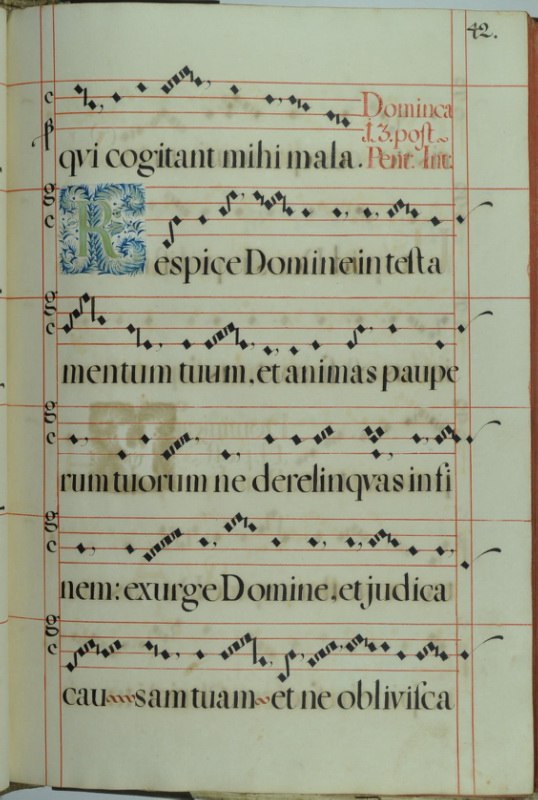 42.
qvi cogitant mihi mala.
Dominca
j. 3. post
Pent. Int.
Respice Domine in testa
mentum tuum, et animas paupe
rum tuorum ne derelinqvas in fi
nem: exurge Domine, et judica
causam tuam et ne oblivisca